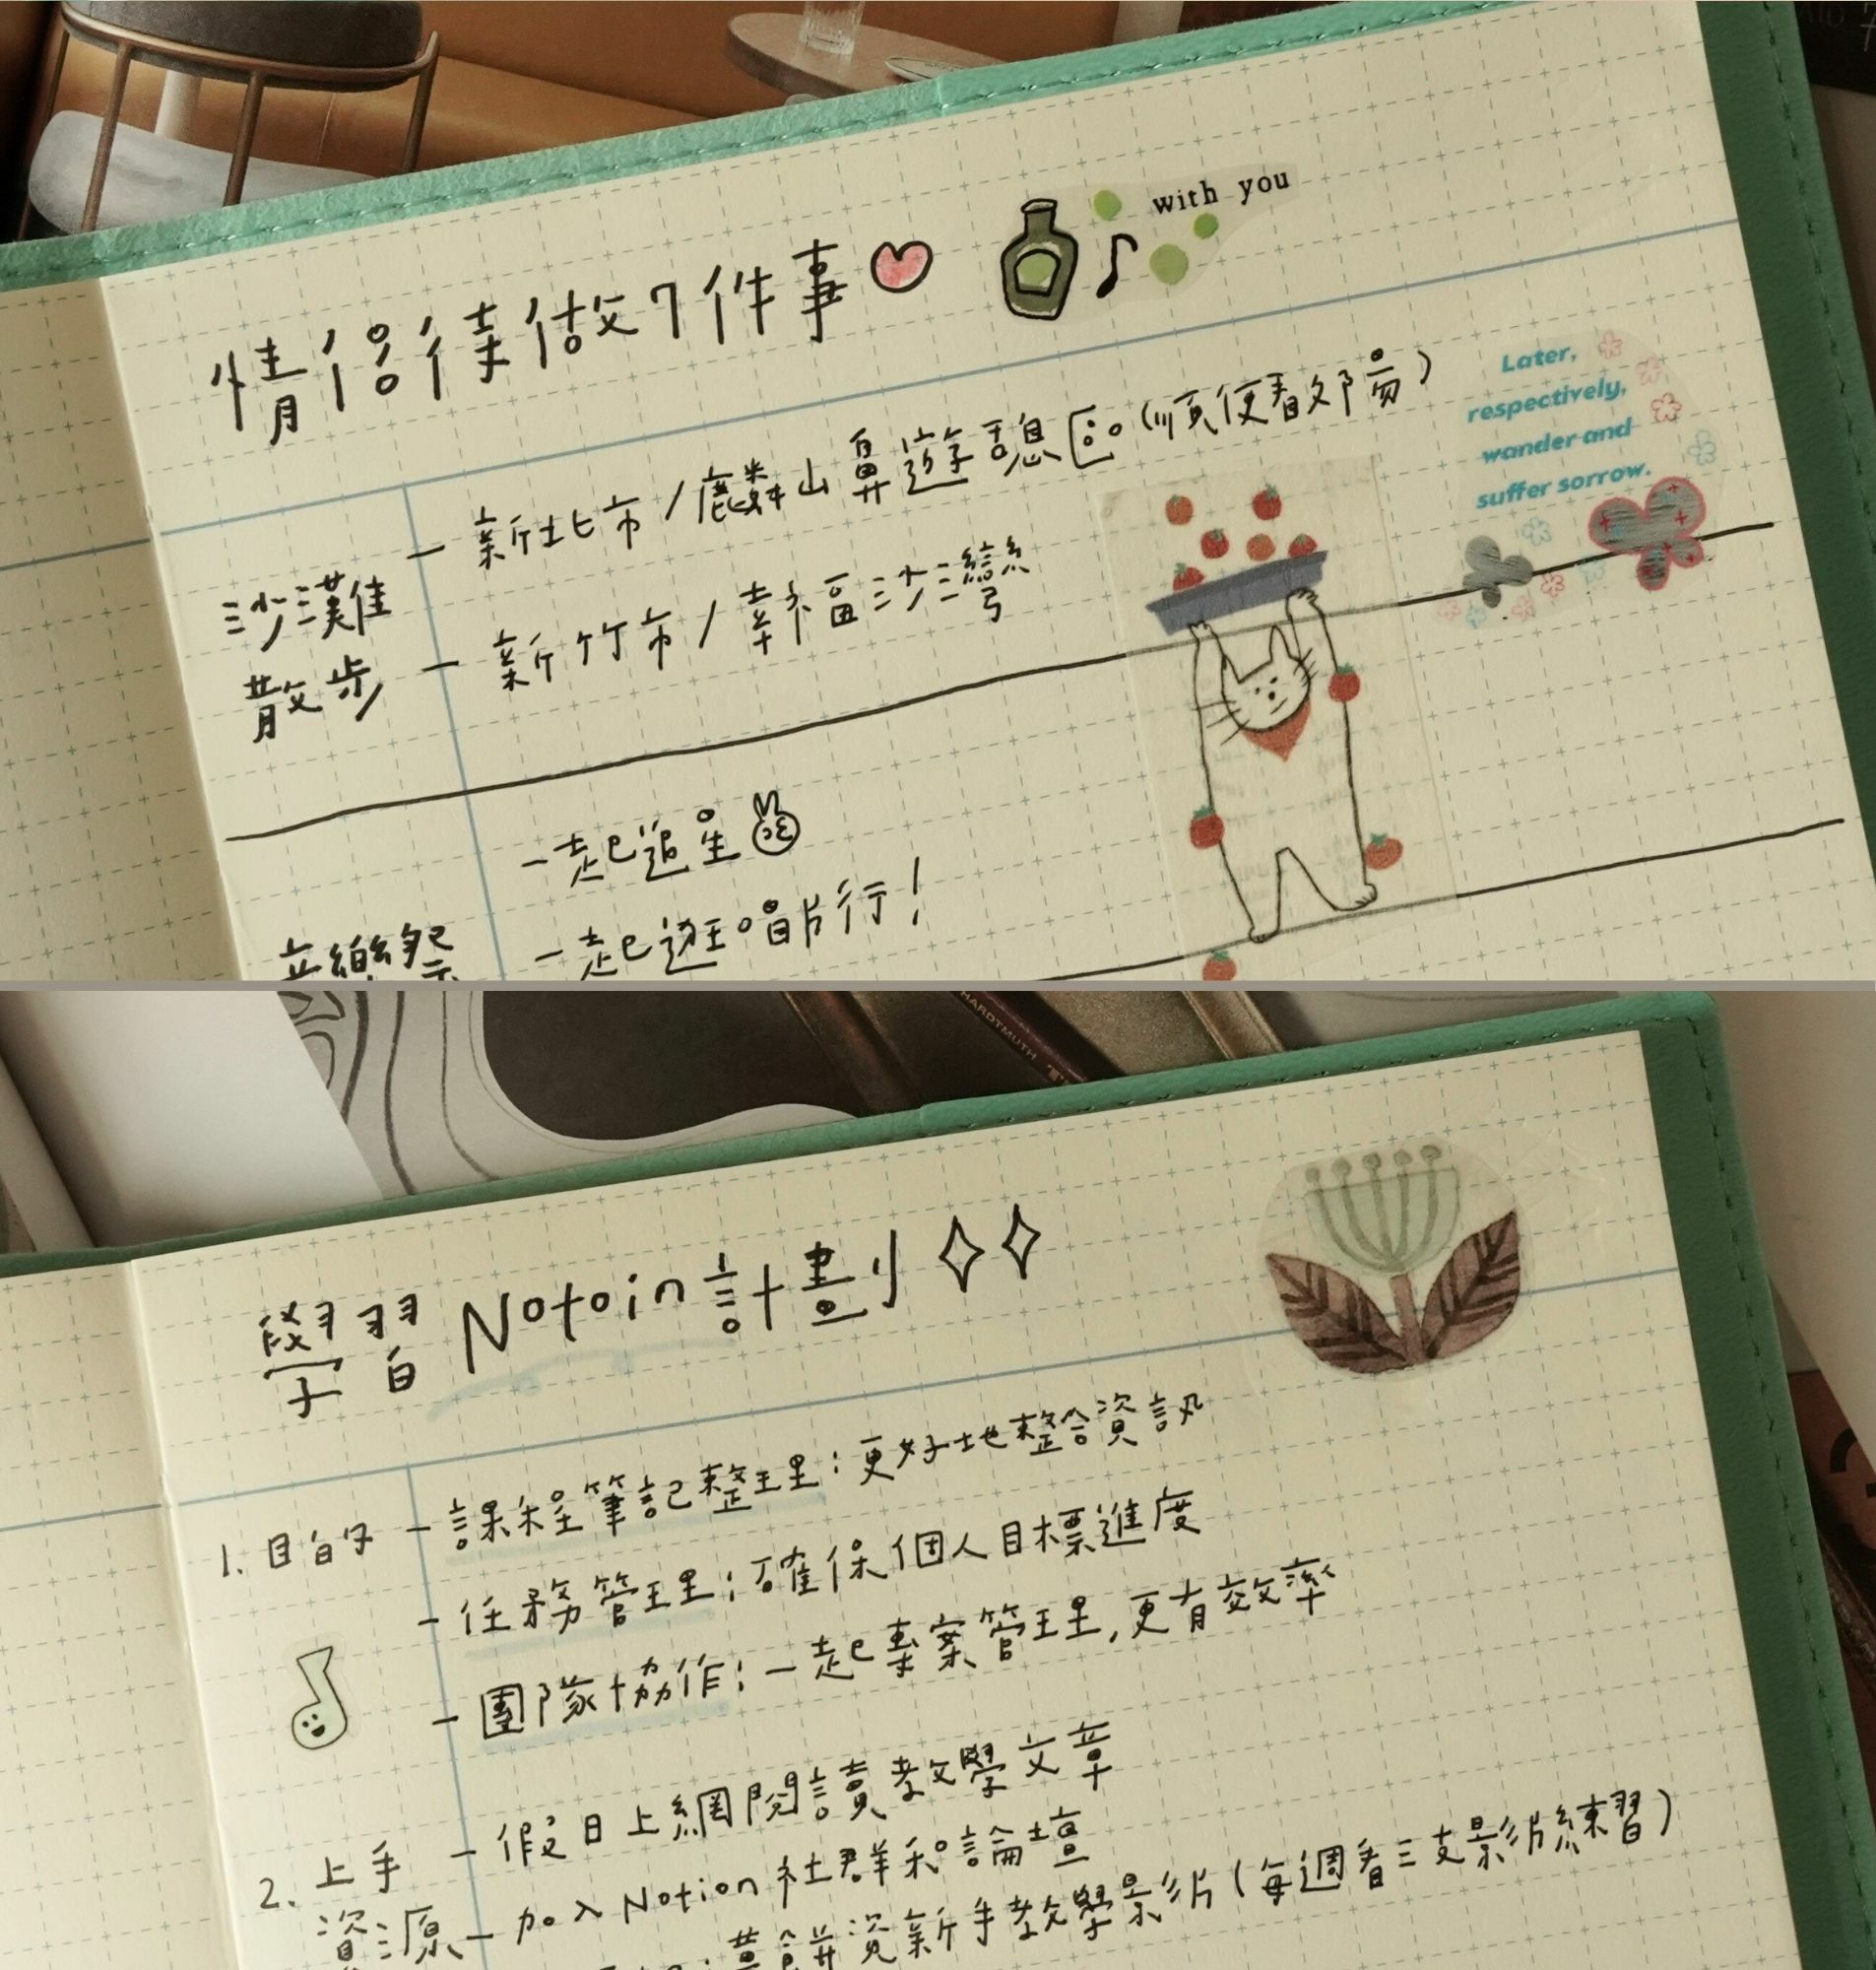 情侶待做7件事
with you
沙灘散步
- 新北市/麟山鼻遊憩區(順便看夕陽)
- 新竹市/幸福沙灣
Later,
respectively,
wander and
suffer sorrow.
音樂祭
- 一起追星
- 一起逛唱片行!
HARDTMUTH
學習 Notoin 計劃
1. 目的
- 課程筆記整理:更好地整合資訊
- 任務管理:確保個人目標進度
- 團隊協作:一起專案管理,更有效率
2. 上手資源
- 假日上網閱讀教學文章
- 加入 Notion 社群和論壇
新手教學影片(每週看三支影片練習)